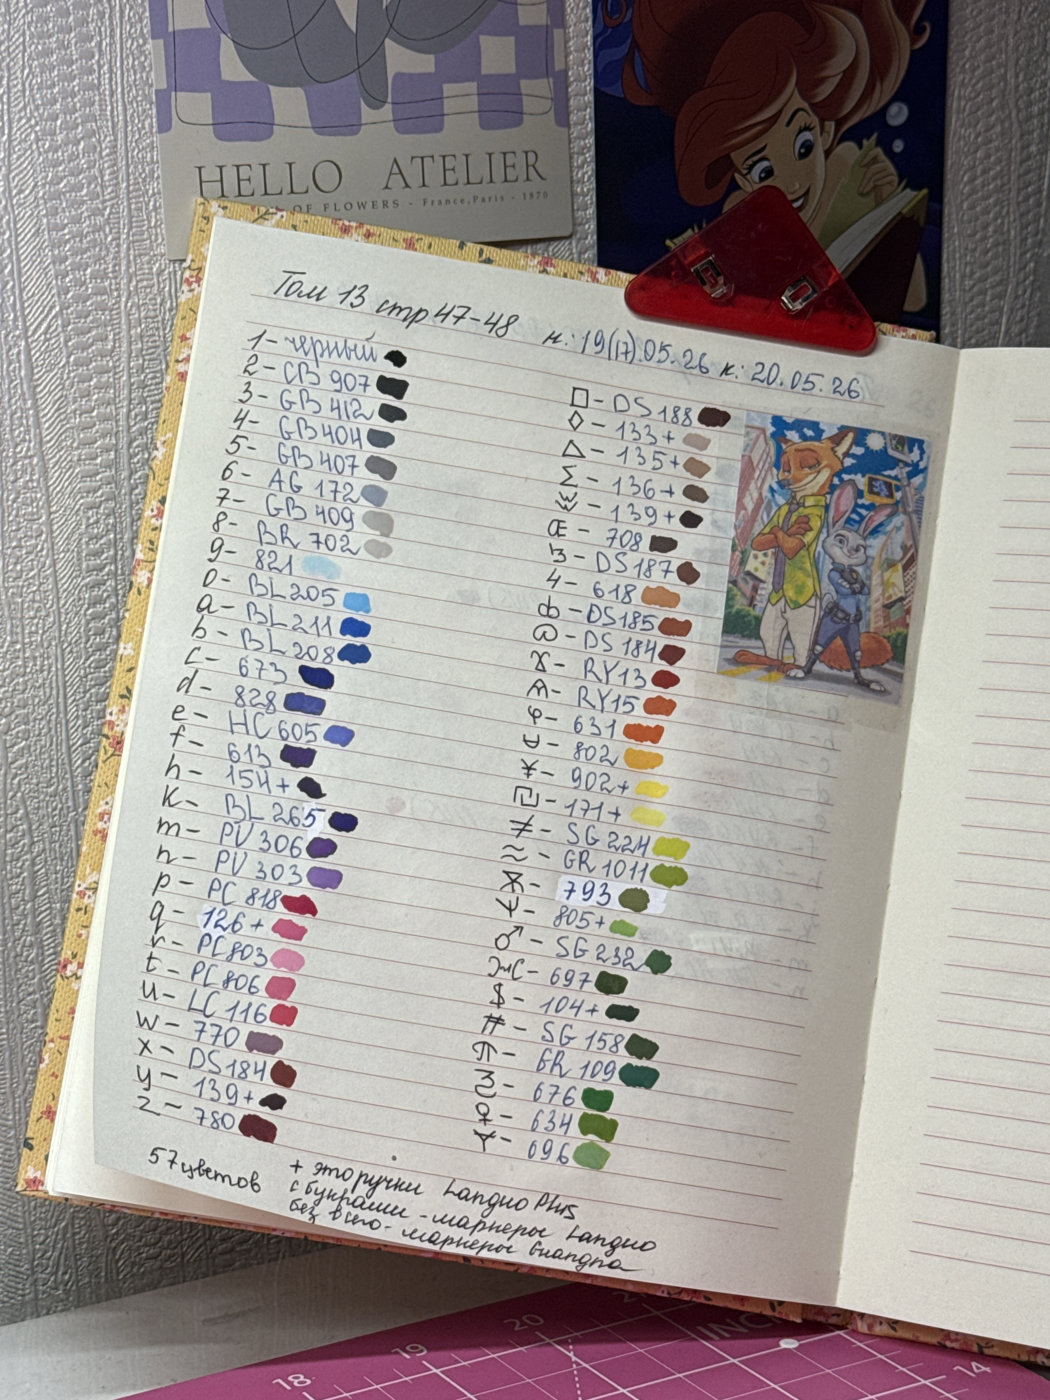 HELLO ATELIER
OF FLOWERS - France, Paris - 1870
Том 13 стр 47-48 н.: 19(17).05.26 к: 20.05.26
1- черный
2- CB 907
3- GB 412
4- GB 404
5- GB 407
6- AG 172
7- GB 409
8- BR 702
9- 821
0- BL 205
a- BL 211
b- BL 208
c- 673
d- 828
e- HC 605
f- 613
h- 154+
k- BL 265
m- PV 306
n- PV 303
p- PC 818
q- 126+
r- PC 803
t- PC 806
u- LC 116
w- 770
x- DS 184
y- 139+
z- 780
□- DS 188
◊- 133+
△- 135+
Σ- 136+
- 139+
Œ- 708
- DS 187
4- 618
ф- DS 185
- DS 184
- RY 13
- RY 15
φ- 631
- 802
¥- 902+
- 171+
≠- SG 224
≈- GR 1011
Ж- 793
Ψ- 805+
♂- SG 232
- 697
$- 104+
#- SG 158
- GR 109
- 676
♀- 634
- 696
57 цветов
+ это ручки Languo Plus
с буквами - маркеры Languo
без всего - маркеры Гуангна
18
19
20
INC
14